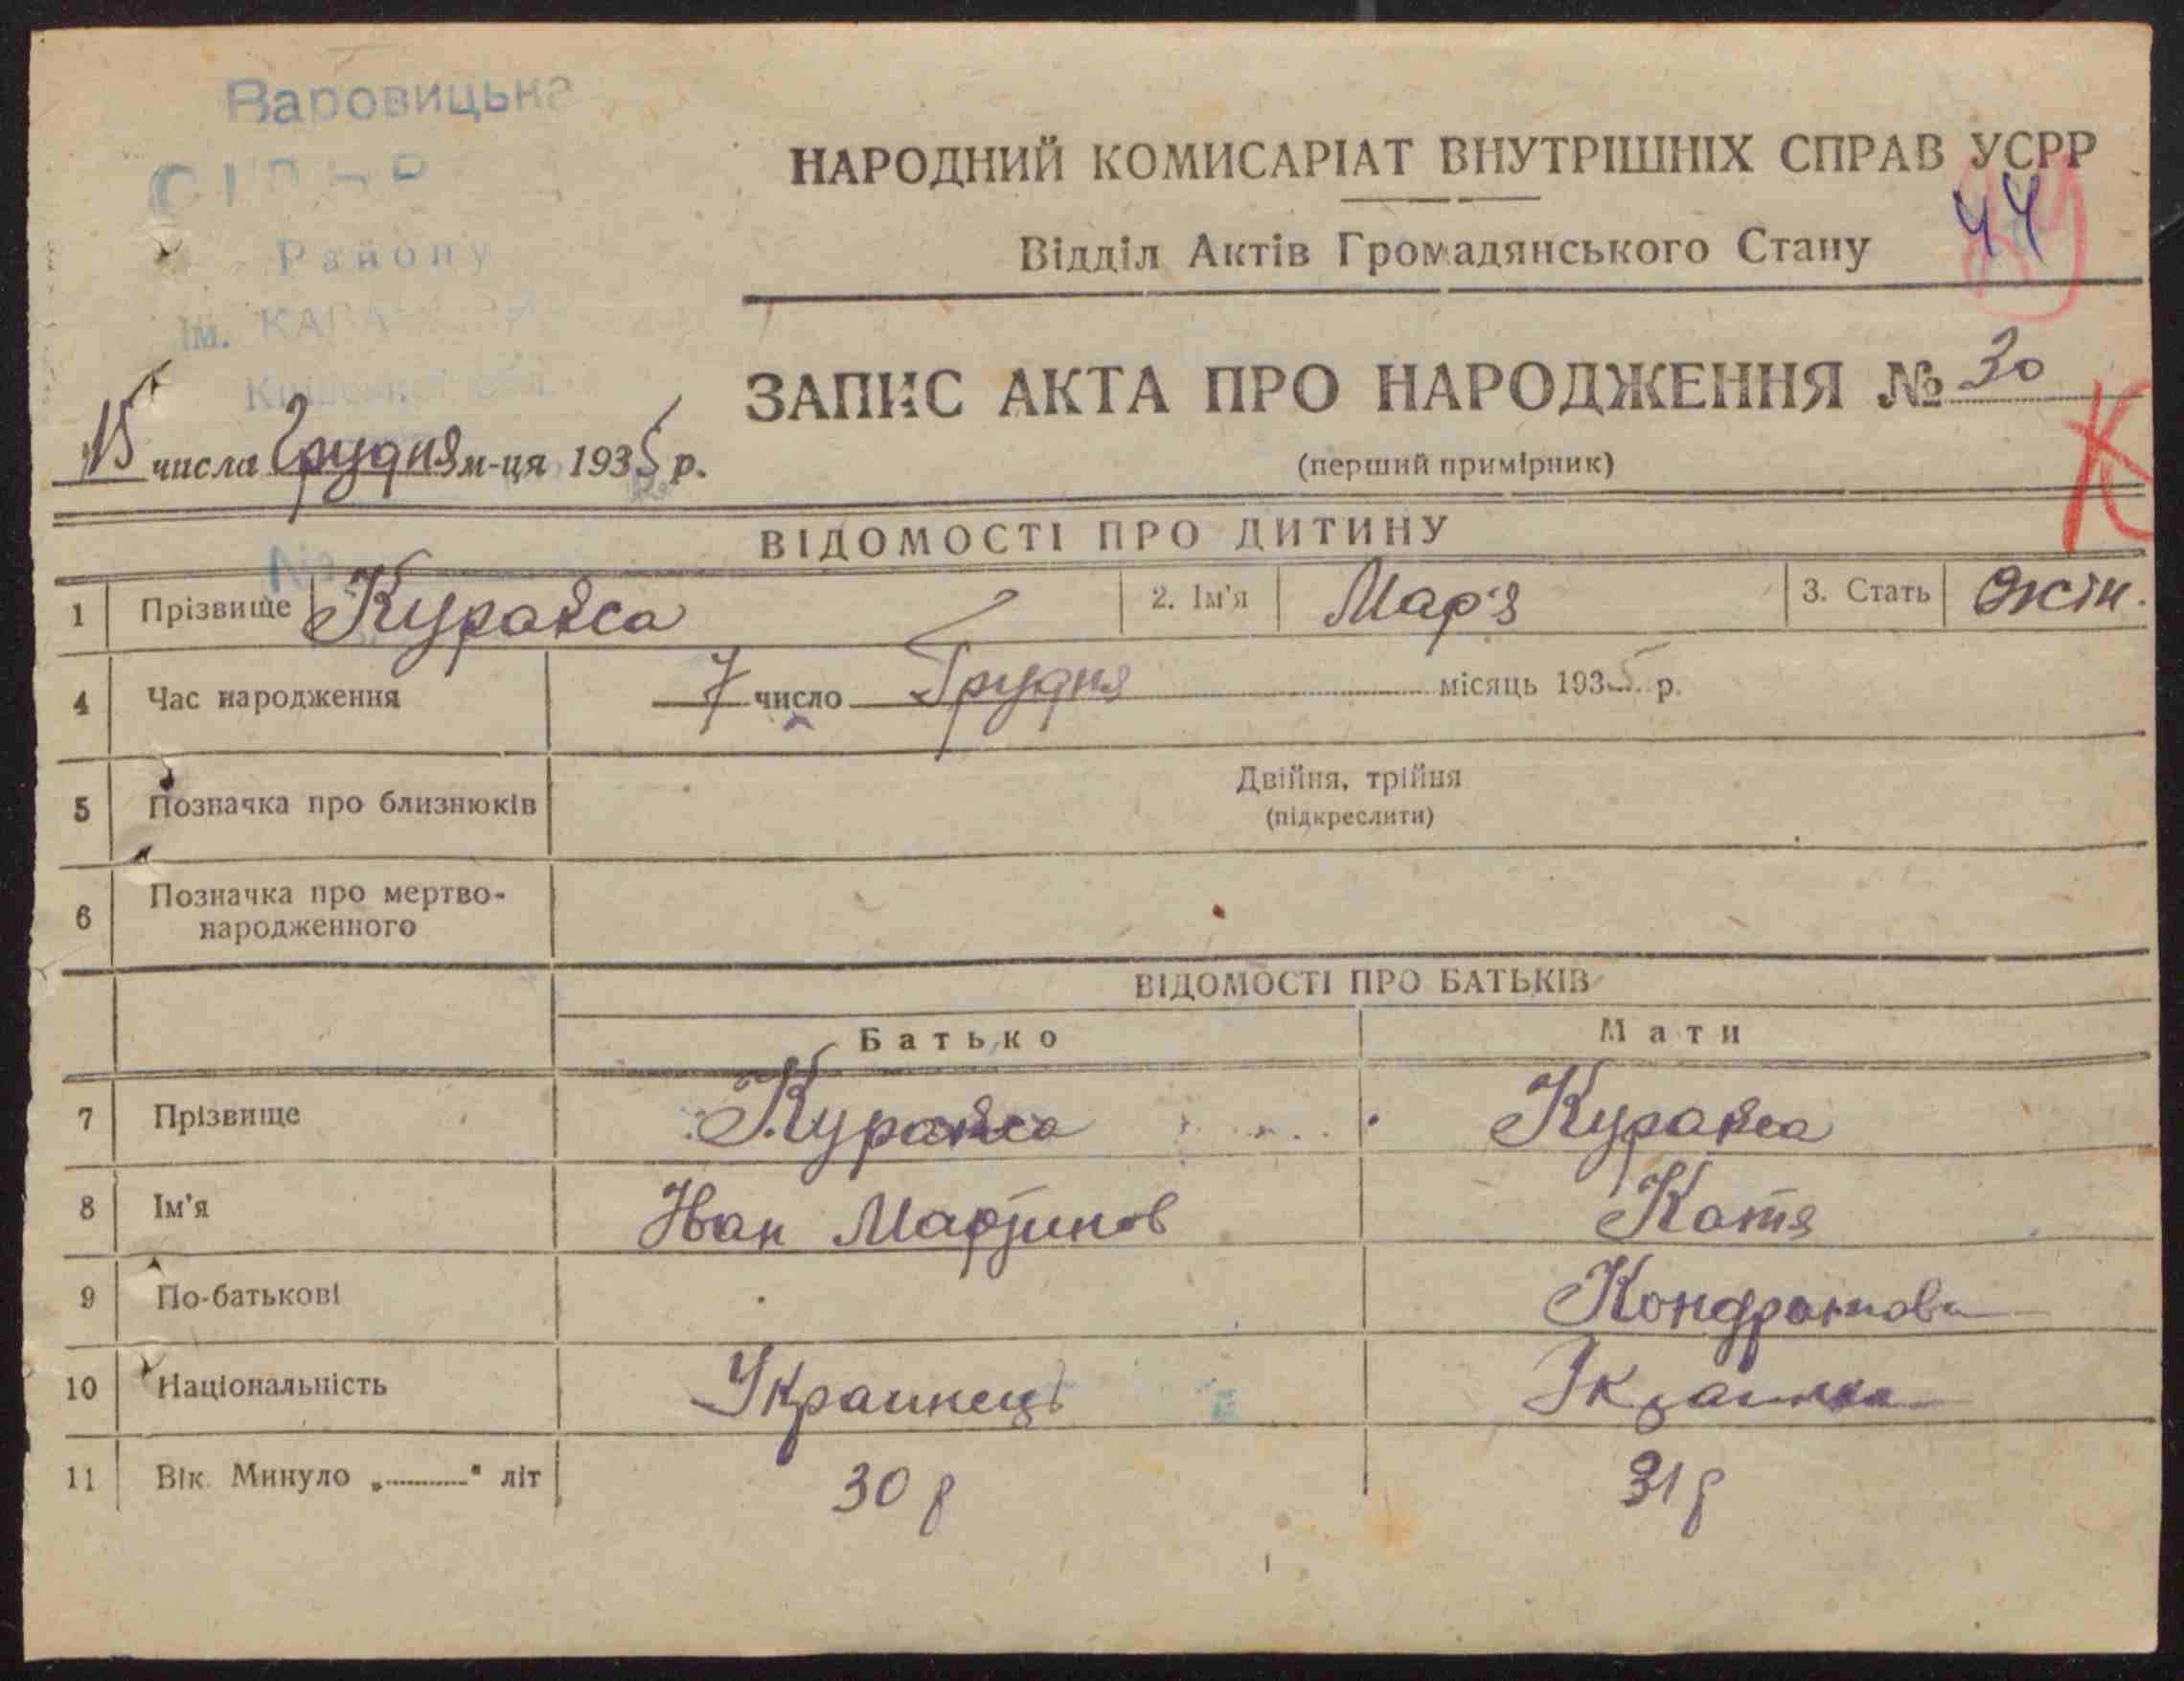 Варовицька
Району
Ім.
НАРОДНИЙ КОМИСАРІАТ ВНУТРІШНІХ СПРАВ УСРР
44
Відділ Актів Громадянського Стану
ЗАПИС АКТА ПРО НАРОДЖЕННЯ № 30
15 числа Грудня м-ця 1935 р.
(перший примірник)
ВІДОМОСТІ ПРО ДИТИНУ
1 Прізвище 2. Ім'я Мар'я 3. Стать жін.
4 Час народження 7 число Грудня місяць 1935 р.
5 Позначка про близнюків Двійня, трійня
(підкреслити)
6 Позначка про мертво-
народженного
ВІДОМОСТІ ПРО БАТЬКІВ
Батько Мати
7 Прізвище
8 Ім'я Иван Мартинов Катя
9 По-батькові Кондратова
10 Національність Украинец
11 Вік. Минуло „ " літ 30 р 31 р